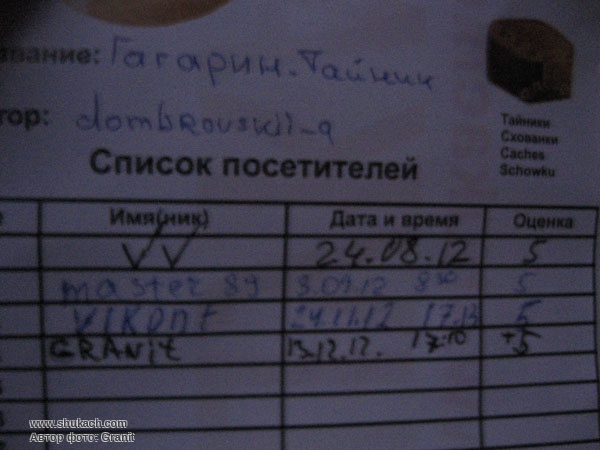 звание: Гагарин. Тайник
тор: dombrovskii_q
Тайники
Схованки
Caches
Schowku
Список посетителей
Имя(ник) Дата и время Оценка
VV 24.08.12 5
master 89 8.09.12 5
VIKONT 24.11.12 17:13 5
GRANIT 13.12.12. 17:10 +5
www.shukach.com
Автор фото: Granit